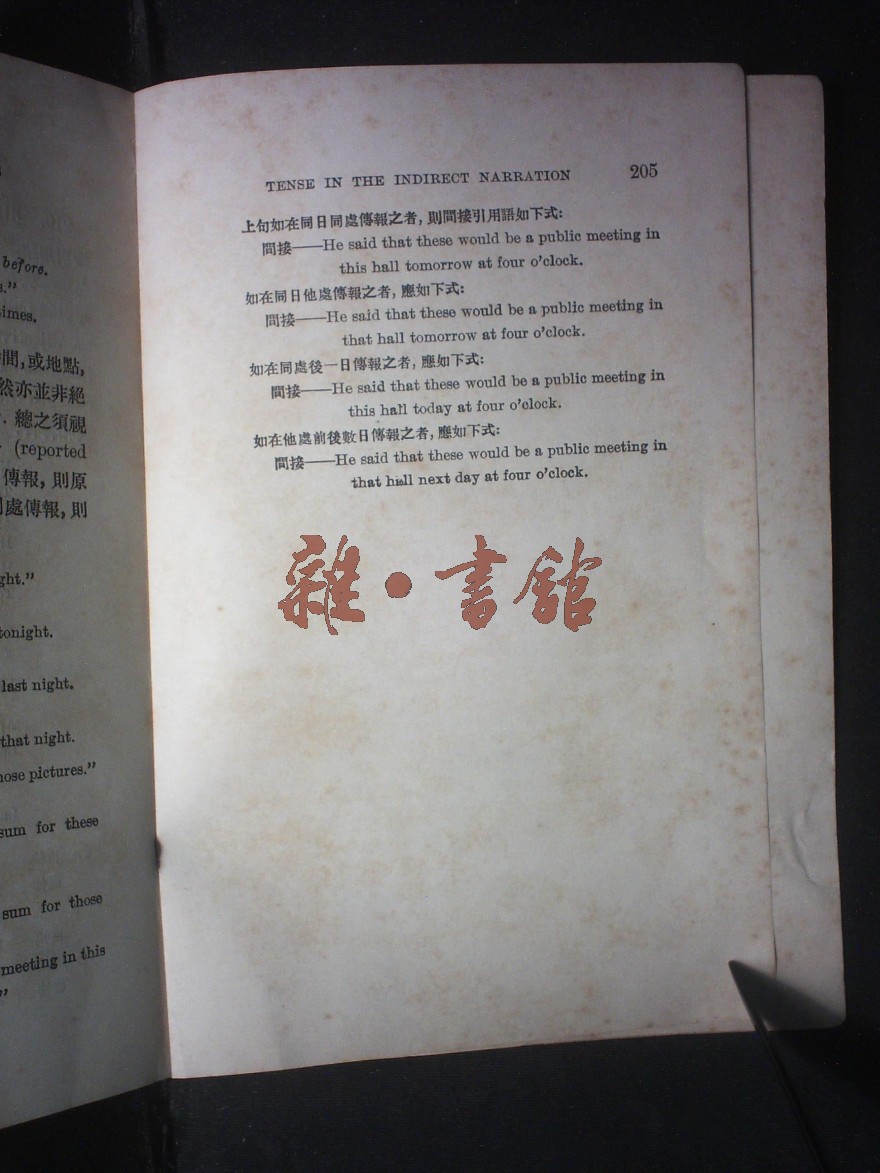 before.
s."
imes.
間,或地點,
然亦並非絕
總之須視
(reported
傳報,則原
處傳報,則
ght."
tonight.
last night.
that night.
hose pictures."
sum for these
sum for those
meeting in this
"
TENSE IN THE INDIRECT NARRATION 205
上句如在同日同處傳報之者,則間接引用語如下式:
間接——He said that these would be a public meeting in
this hall tomorrow at four o'clock.
如在同日他處傳報之者,應如下式:
間接——He said that these would be a public meeting in
that hall tomorrow at four o'clock.
如在同處後一日傳報之者,應如下式:
間接——He said that these would be a public meeting in
this hall today at four o'clock.
如在他處前後數日傳報之者,應如下式:
間接——He said that these would be a public meeting in
that hall next day at four o'clock.
雜•書館